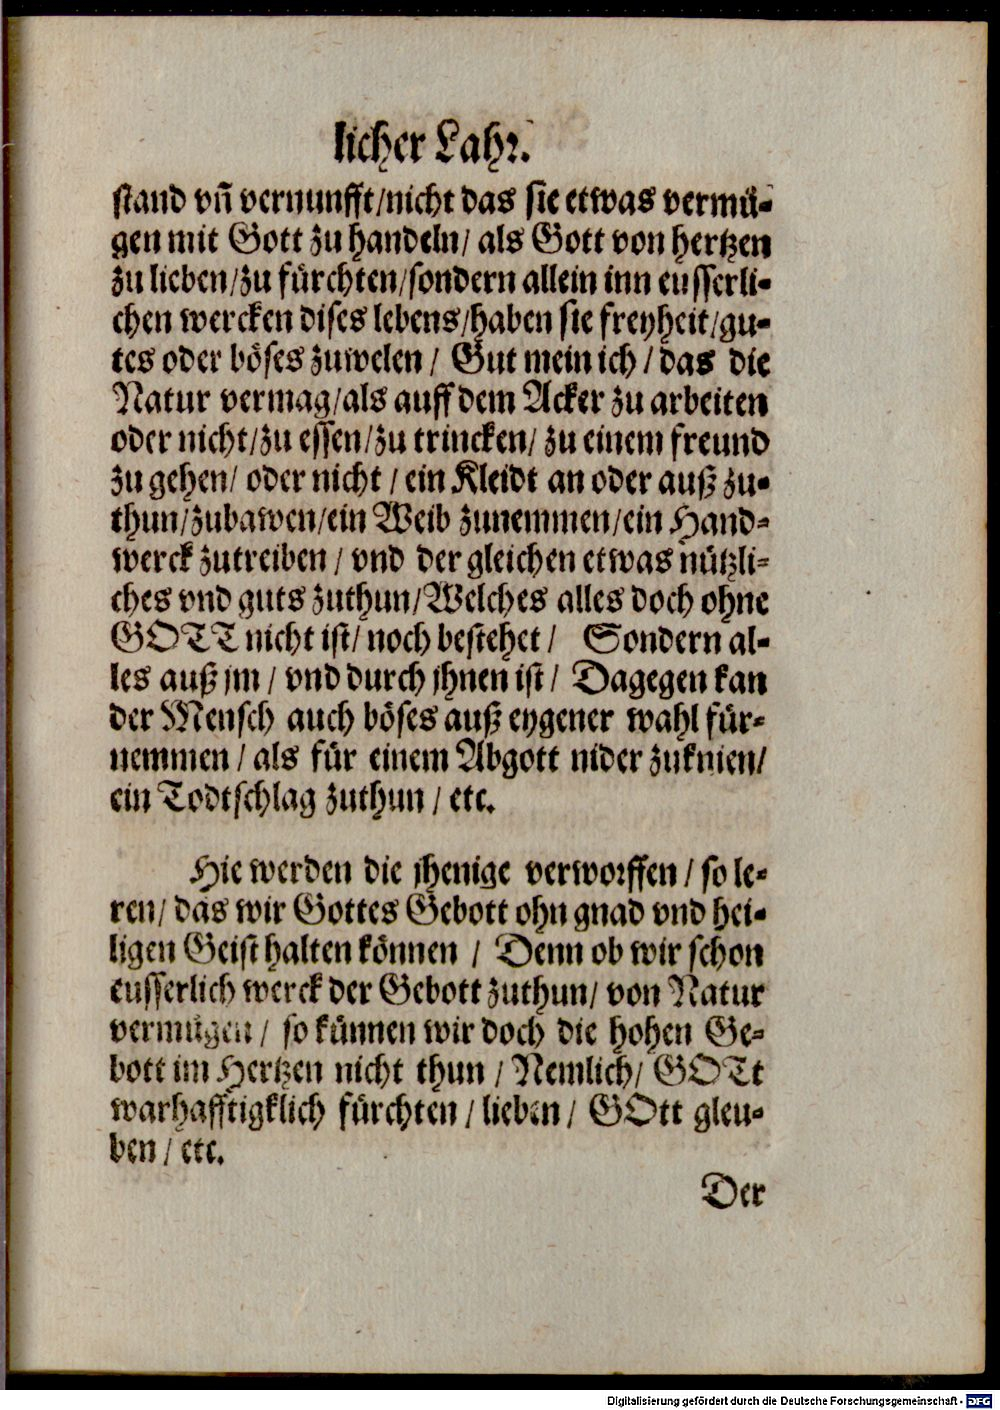 licher Lahr.
stand vñ vernunfft/nicht das sie etwas vermü-
gen mit Gott zu handeln/ als Gott von hertzen
zu lieben/zu fürchten/sondern allein inn eusserli-
chen wercken dises lebens/haben sie freyheit/gu-
tes oder böses zuwelen/ Gut mein ich/das die
Natur vermag/als auff dem Acker zu arbeiten
oder nicht/zu essen/zu trincken/ zu einem freund
zu gehen/ oder nicht/ ein Kleidt an oder auß zu-
thun/zubawen/ein Weib zunemmen/ein Hand-
werck zutreiben/ vnd der gleichen etwas nützli-
ches vnd guts zuthun/Welches alles doch ohne
GOTT nicht ist/ noch bestehet/ Sondern al-
les auß jm/ vnd durch jhnen ist/ Dagegen kan
der Mensch auch böses auß eygener wahl für-
nemmen/ als für einem Abgott nider zuknien/
ein Todtschlag zuthun/ etc.
Hie werden die jhenige verworffen/ so le-
ren/ das wir Gottes Gebott ohn gnad vnd hei-
ligen Geist halten können/ Denn ob wir schon
eusserlich werck der Gebott zuthun/ von Natur
vermügen/ so künnen wir doch die hohen Ge-
bott im Hertzen nicht thun/ Nemlich/ GOTt
warhafftigklich fürchten/ lieben/ GOtt gleu-
ben/ etc.
Der
Digitalisierung gefördert durch die Deutsche Forschungsgemeinschaft - DFG